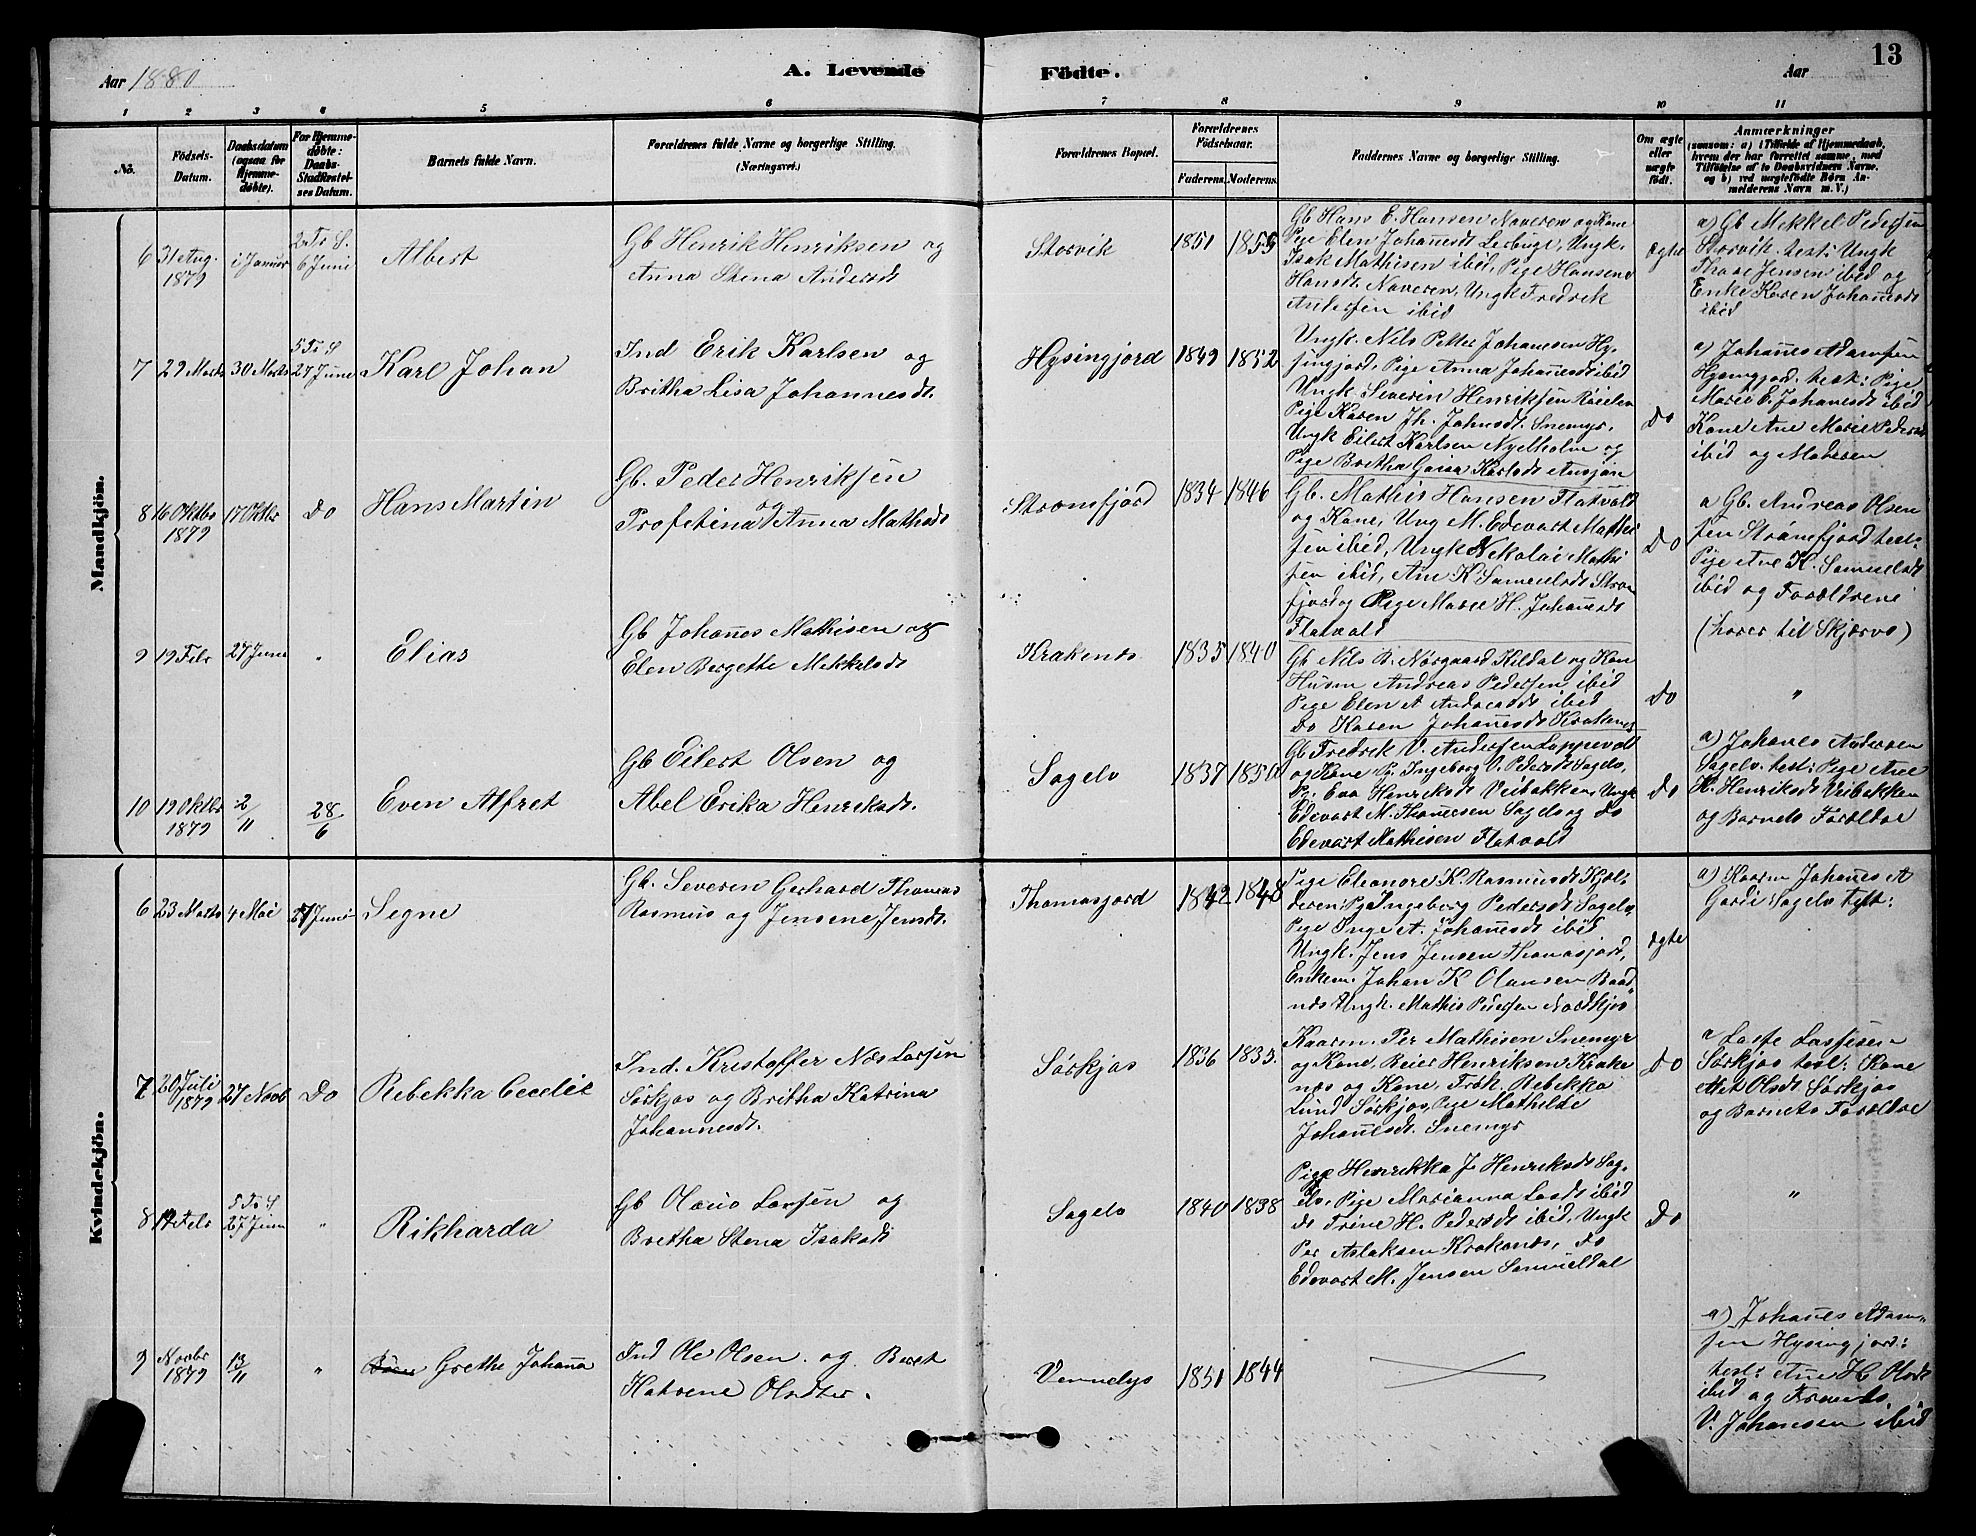 Aar 1880
A. Levende
Födte.
Aar
13
1 2 3 4 5 6 7 8 9 10 11
No.
Födsels-Datum.
Daabsdatum (ogsaa for Hjemmedöbte).
For Hjemmedöbte: Daabs-Stadfæstelses Datum.
Barnets fulde Navn.
Forældrenes fulde Navne og borgerlige Stilling. (Næringsvei.)
Forældrenes Bopæl.
Forældrenes Födselsaar.
Faderens. Moderens.
Faddernes Navne og borgerlige Stilling.
Om ægte eller uægte födt.
Anmærkninger
(saasom: a) i Tilfælde af Hjemmedaab, hvem der har forrettet samme, med Tilföielse af to Daabsvidners Navne, og b) ved uægtefödte Börn Anmelderens Navn m. V.)
Mandkjön.
6 31 Aug. 1879
1 Januar
2 Tr S. 6 Juni
Albert
Gb Henrik Henriksen og
Anna Stena Andersdt
Storvik
1851 1855
Gb Hans E. Hansen Naveren og Kone
Pige Elen Johanesdt Ungk.
Isak Mathisen ibid, Pige Hansene
Hansdt. Naveren, Ungk Fredrik
Andersen ibid
ægte
a) Gb Mekkel Pedersen
Storvik. test: Ungk
Jensen ibid og
Enke Karen Johanesdt
ibid
7 29 Marts
30 Marts
5 Tr S 27 June
Karl Johan
Ind Erik Karlsen og
Britha Lisa Johannesdt.
Hysingjord
1849 1852
Ungk. Nils Petter Johanesen Hysingjord, Pige Anna Johanesdt ibid
Ungk Severin Henriksen
Pige Karen Jh. Johnsdt. Snemyr,
Ungk Eilert Karlsen og
Pige Bretha Karlsdt
Do
a) Johanes Adamsen
Hysingjord. test: Pige
Marie E. Johanesdt ibid
Kone Ane Marie Pedersdt
ibid og Moderen
8 16 Oktbr 1879
17 Oktbr
Do
Hans Martin
Gb. Peder Henriksen
og
Profetina Anna Mathsdt
Stromfjord
1834 1846
Gb. Mathis Hansen Flatvold
og Kone, Ung M. Edevart Mathisen ibid, Ungk Nekolai Mathisen ibid, Ane K Samuelsdt Stromfjord og Pige Maree H. Johanesdt
Flatvold
Do
a Gb. Andreas Olsen
Strömfjord test:
Pige Ane K. Samuelsdt
ibid og Forældrene
9 19 Febr
27 Juni
"
Elias
Gb Johanes Mathisen og
Elen Bergette Mekkelsdt
Krakenes
1835 1840
Gb Nils B. Norgaard Kildal og Kone
Husm Andreas Pedersen ibid
Pige Elen A Andreasdt ibid
Do Karen Johanesdt Krakenes
Do
(hører til Skjærvø)
"
10 19 Oktbr 1879
2/11
28/6
Even Alfret
Gb Eilert Olsen og
Abel Erika Henriksdt.
Sagelv
1837 1850
Gb Fredrik V. Andersen Loppevold
og Kone Pg. Ingeborg V. Pedersdt Sagelv,
Pg. Eva Henriksdt Veibakken, Ungk
Edevart M. Thomesen Sagelv og do
Edevart Mathisen Flatvold
Do
a) Johanes Andersen
Sagelv. test: Pige Ane
H. Henriksdt Veibakken
og Barnets Forældre
Kvindekjön.
6 23 Marts
4 Mai
27 Juni
Segne
Gb. Severen Gerhard Thomas
Rasmus og Jensene Jensdt.
Thomasjord
1842 1848
Pige Eleonore K. Rasmusdt Kjelderen, Pg Ingeborg Pedersdt Sagelv,
Pige Inge A. Johanesdt ibid
Ungk. Jens Jensen Thomasjord,
Enkem. Johan K Olansen
Ungk. Mathis Pedersen Nordkjos
ægte
a) Kaarm Johanes A
Gardi Sagelv
7 20 Juli 1879
27 Novb
Do
Rebekka Cecelie
Ind. Kristoffer Nils Larsen
Sørkjos og Britha Katrina
Johannesdt.
Sørkjos
1836 1835.
Kaarm. Per Mathisen Snemyr
og Kone, Beier Henriksen Krakenes og Kone, Frök. Rebekka
Lund Sørkjos, Pige Mathilde
Johanesdt. Snemyr
Do
a Lasse Lassesen
Sørkjos test: Kone
Olsdt Sørkjos
og Barnets Forældre
8 19 Febr
5 Tr S 27 Juni
"
Rikharda
Gb Olaus Larsen og
Bretha Stena Isaksdt
Sagelv
1840 1838
Pige Henrikka J. Henriksdt Sagelv, Pige Marianna Larsdt ibid
do Trine H. Pedersdt ibid, Ungk
Per Aslaksen Krakenes, do
Edevart M. Jensen Samueldal
Do
"
9 Novbr 1879
13/11
"
Grethe Johanna
Ind Ole Olsen og Beret
Katrene Olsdter.
Vennelys
1851 1844
a) Johanes Adamsen Hysingjord:
test: Ane H Olsdt
ibid og
V. Johansen ibid